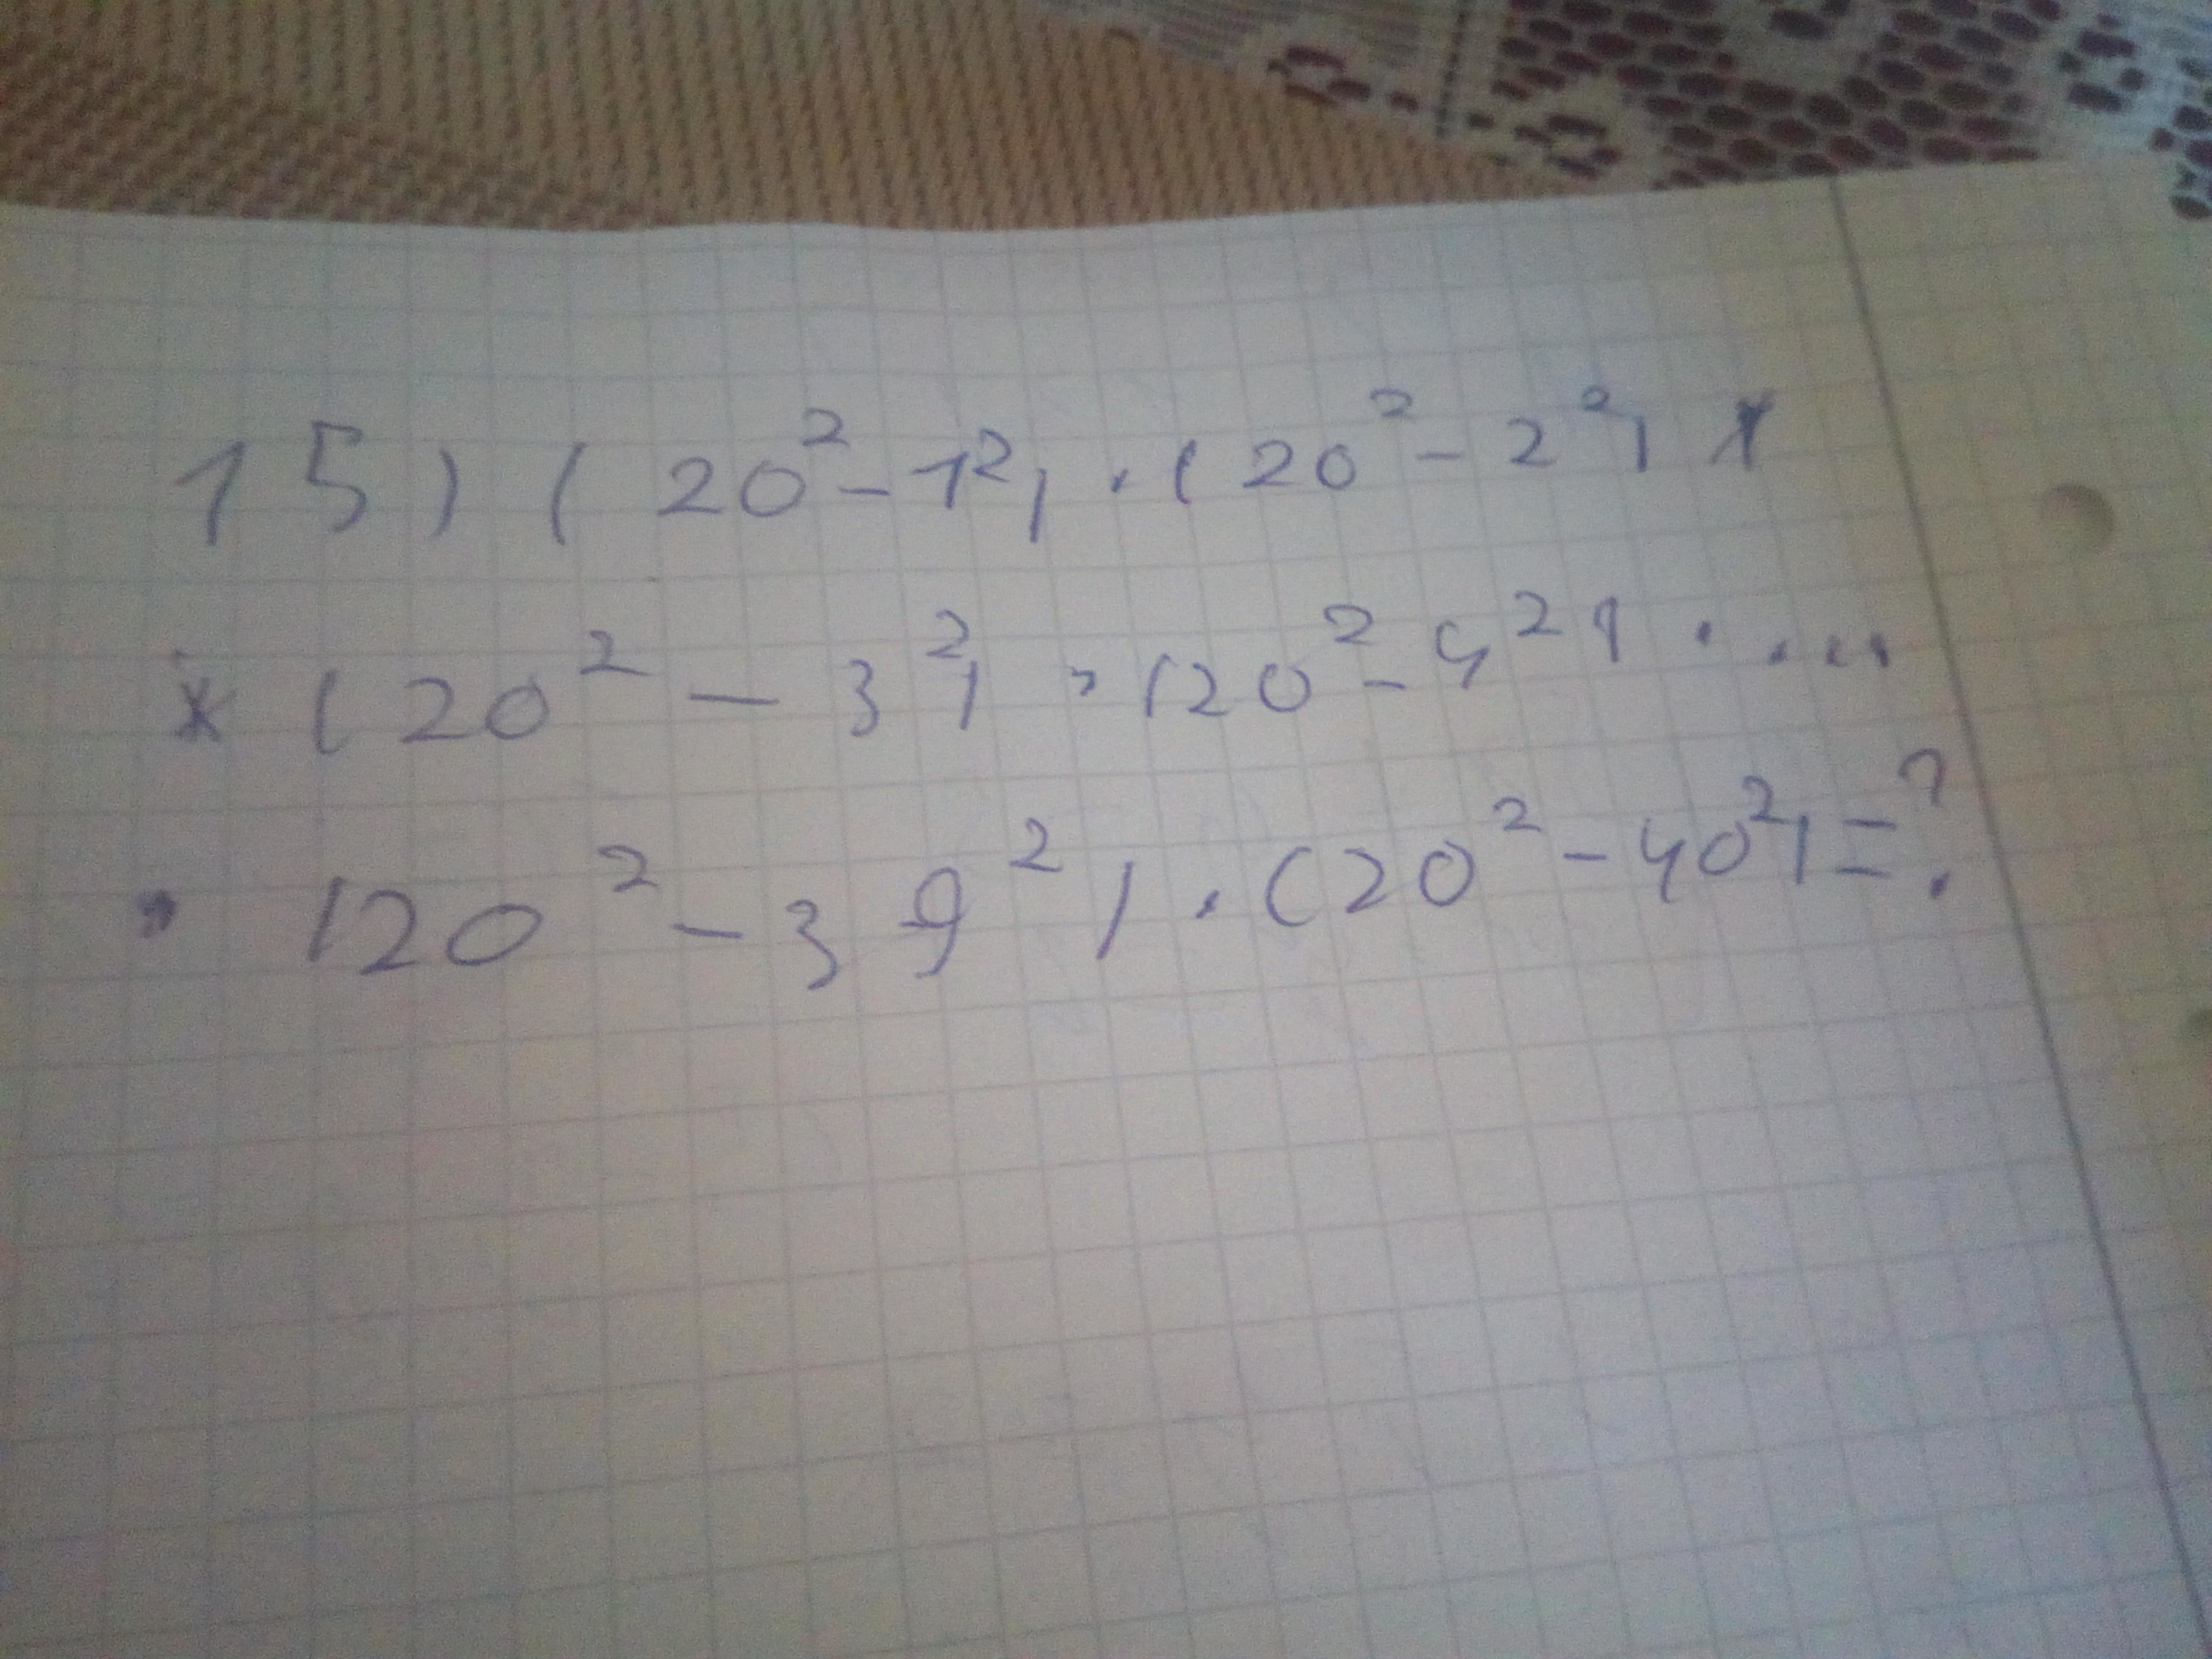 15) (20²-1²) · (20²-2²) *
* (20² - 3²) · (20²-4²) · ...
· (20² - 39²) · (20² - 40²) = ?